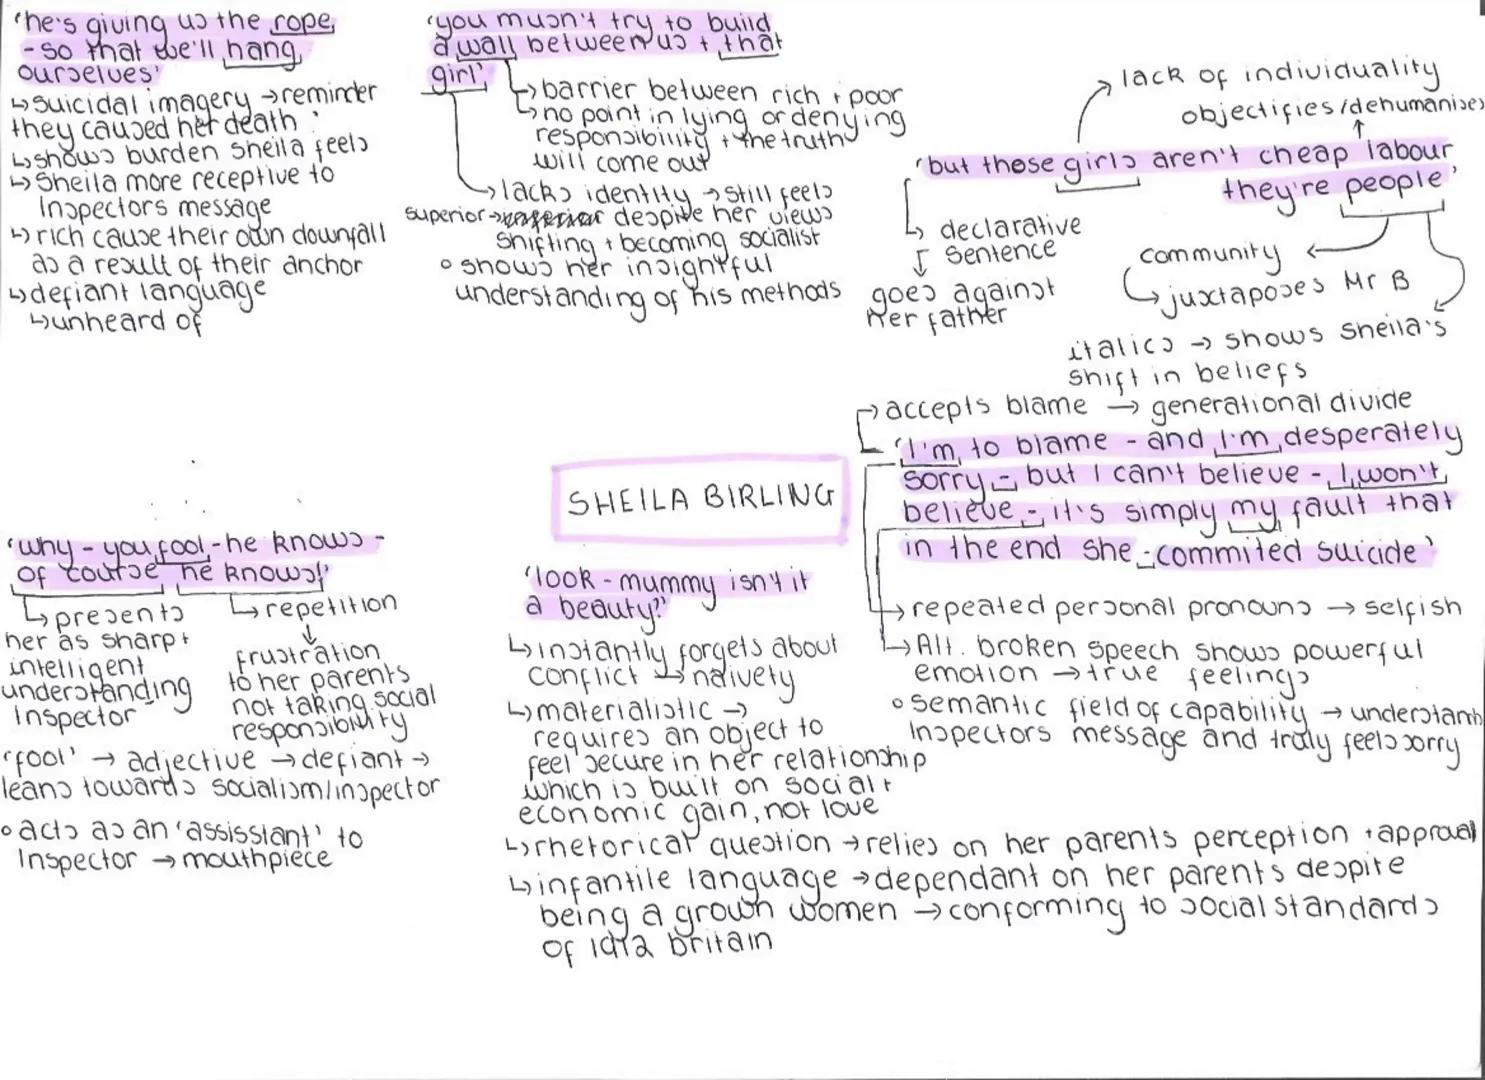 'he's giving us the rope
- so that we'll hang
ourselves'
↳ suicidal imagery → reminder
they caused her death
↳ shows burden Sheila feels
↳ Sheila more receptive to
Inspectors message
↳ rich cause their own downfall
as a result of their anchor
↳ defiant language
↳ unheard of
'you musn't try to build
a wall between us + that
girl'
↳ barrier between rich + poor
↳ no point in lying or denying
responsibility + the truth
will come out
↳ lacks identity → still feels
superior → despite her views
shifting + becoming socialist
• shows her insightful
understanding of his methods
lack of individuality
objectifies/dehumanises
'but those girls aren't cheap labour
they're people'
↳ declarative
sentence
goes against
her father
community
↳ juxtaposes Mr B
italics → shows Sheila's
shift in beliefs
→ accepts blame → generational divide
'I'm to blame - and I'm desperately
sorry - but I can't believe - I won't
believe - it's simply my fault that
in the end she - commited suicide'
→ repeated personal pronouns → selfish
→ Alt. broken speech shows powerful
emotion → true feelings
• semantic field of capability → understants
Inspectors message and truly feels sorry
SHEILA BIRLING
'why - you fool - he knows -
of course he knows!'
↳ presents
her as sharp +
intelligent
understanding
Inspector
↳ repetition
↓
frustration
to her parents
not taking social
responsibility
'fool' → adjective → defiant →
leans towards socialism/inspector
• acts as an 'assisstant' to
Inspector → mouthpiece
'look - mummy isn't it
a beauty?'
↳ instantly forgets about
conflict ↳ naivety
↳ materialistic →
requires an object to
feel secure in her relationship
which is built on social +
economic gain, not love
↳ rhetorical question → relies on her parents perception + approval
↳ infantile language → dependant on her parents despite
being a grown women → conforming to social standards
of 1912 britain